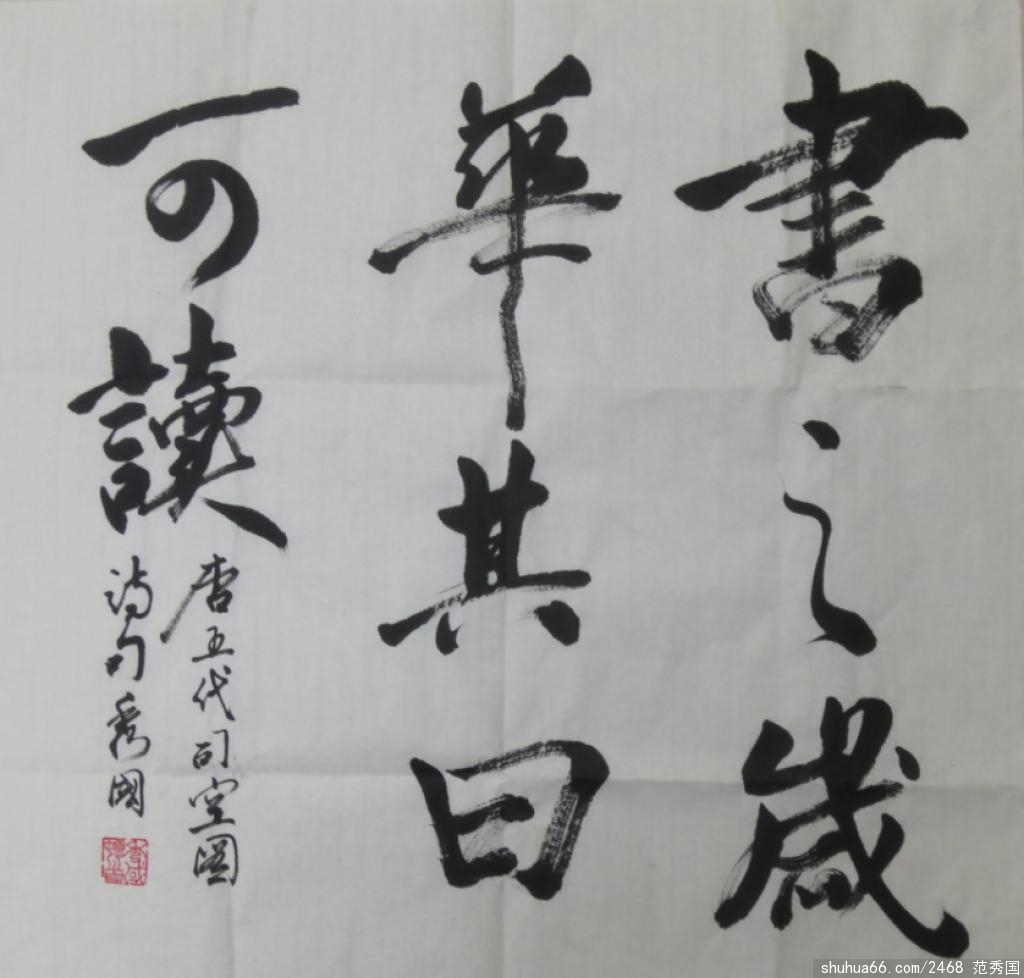 書之歲
華其曰
可讀
唐五代司空圖
詩句秀國
shuhua66.com/2468 范秀国